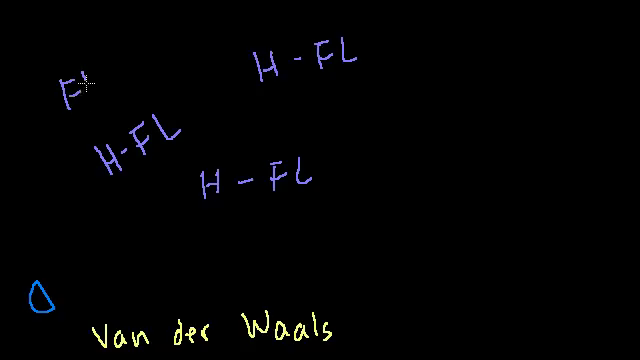 H - FL
F
H-FL
H - FL
Van der Waals